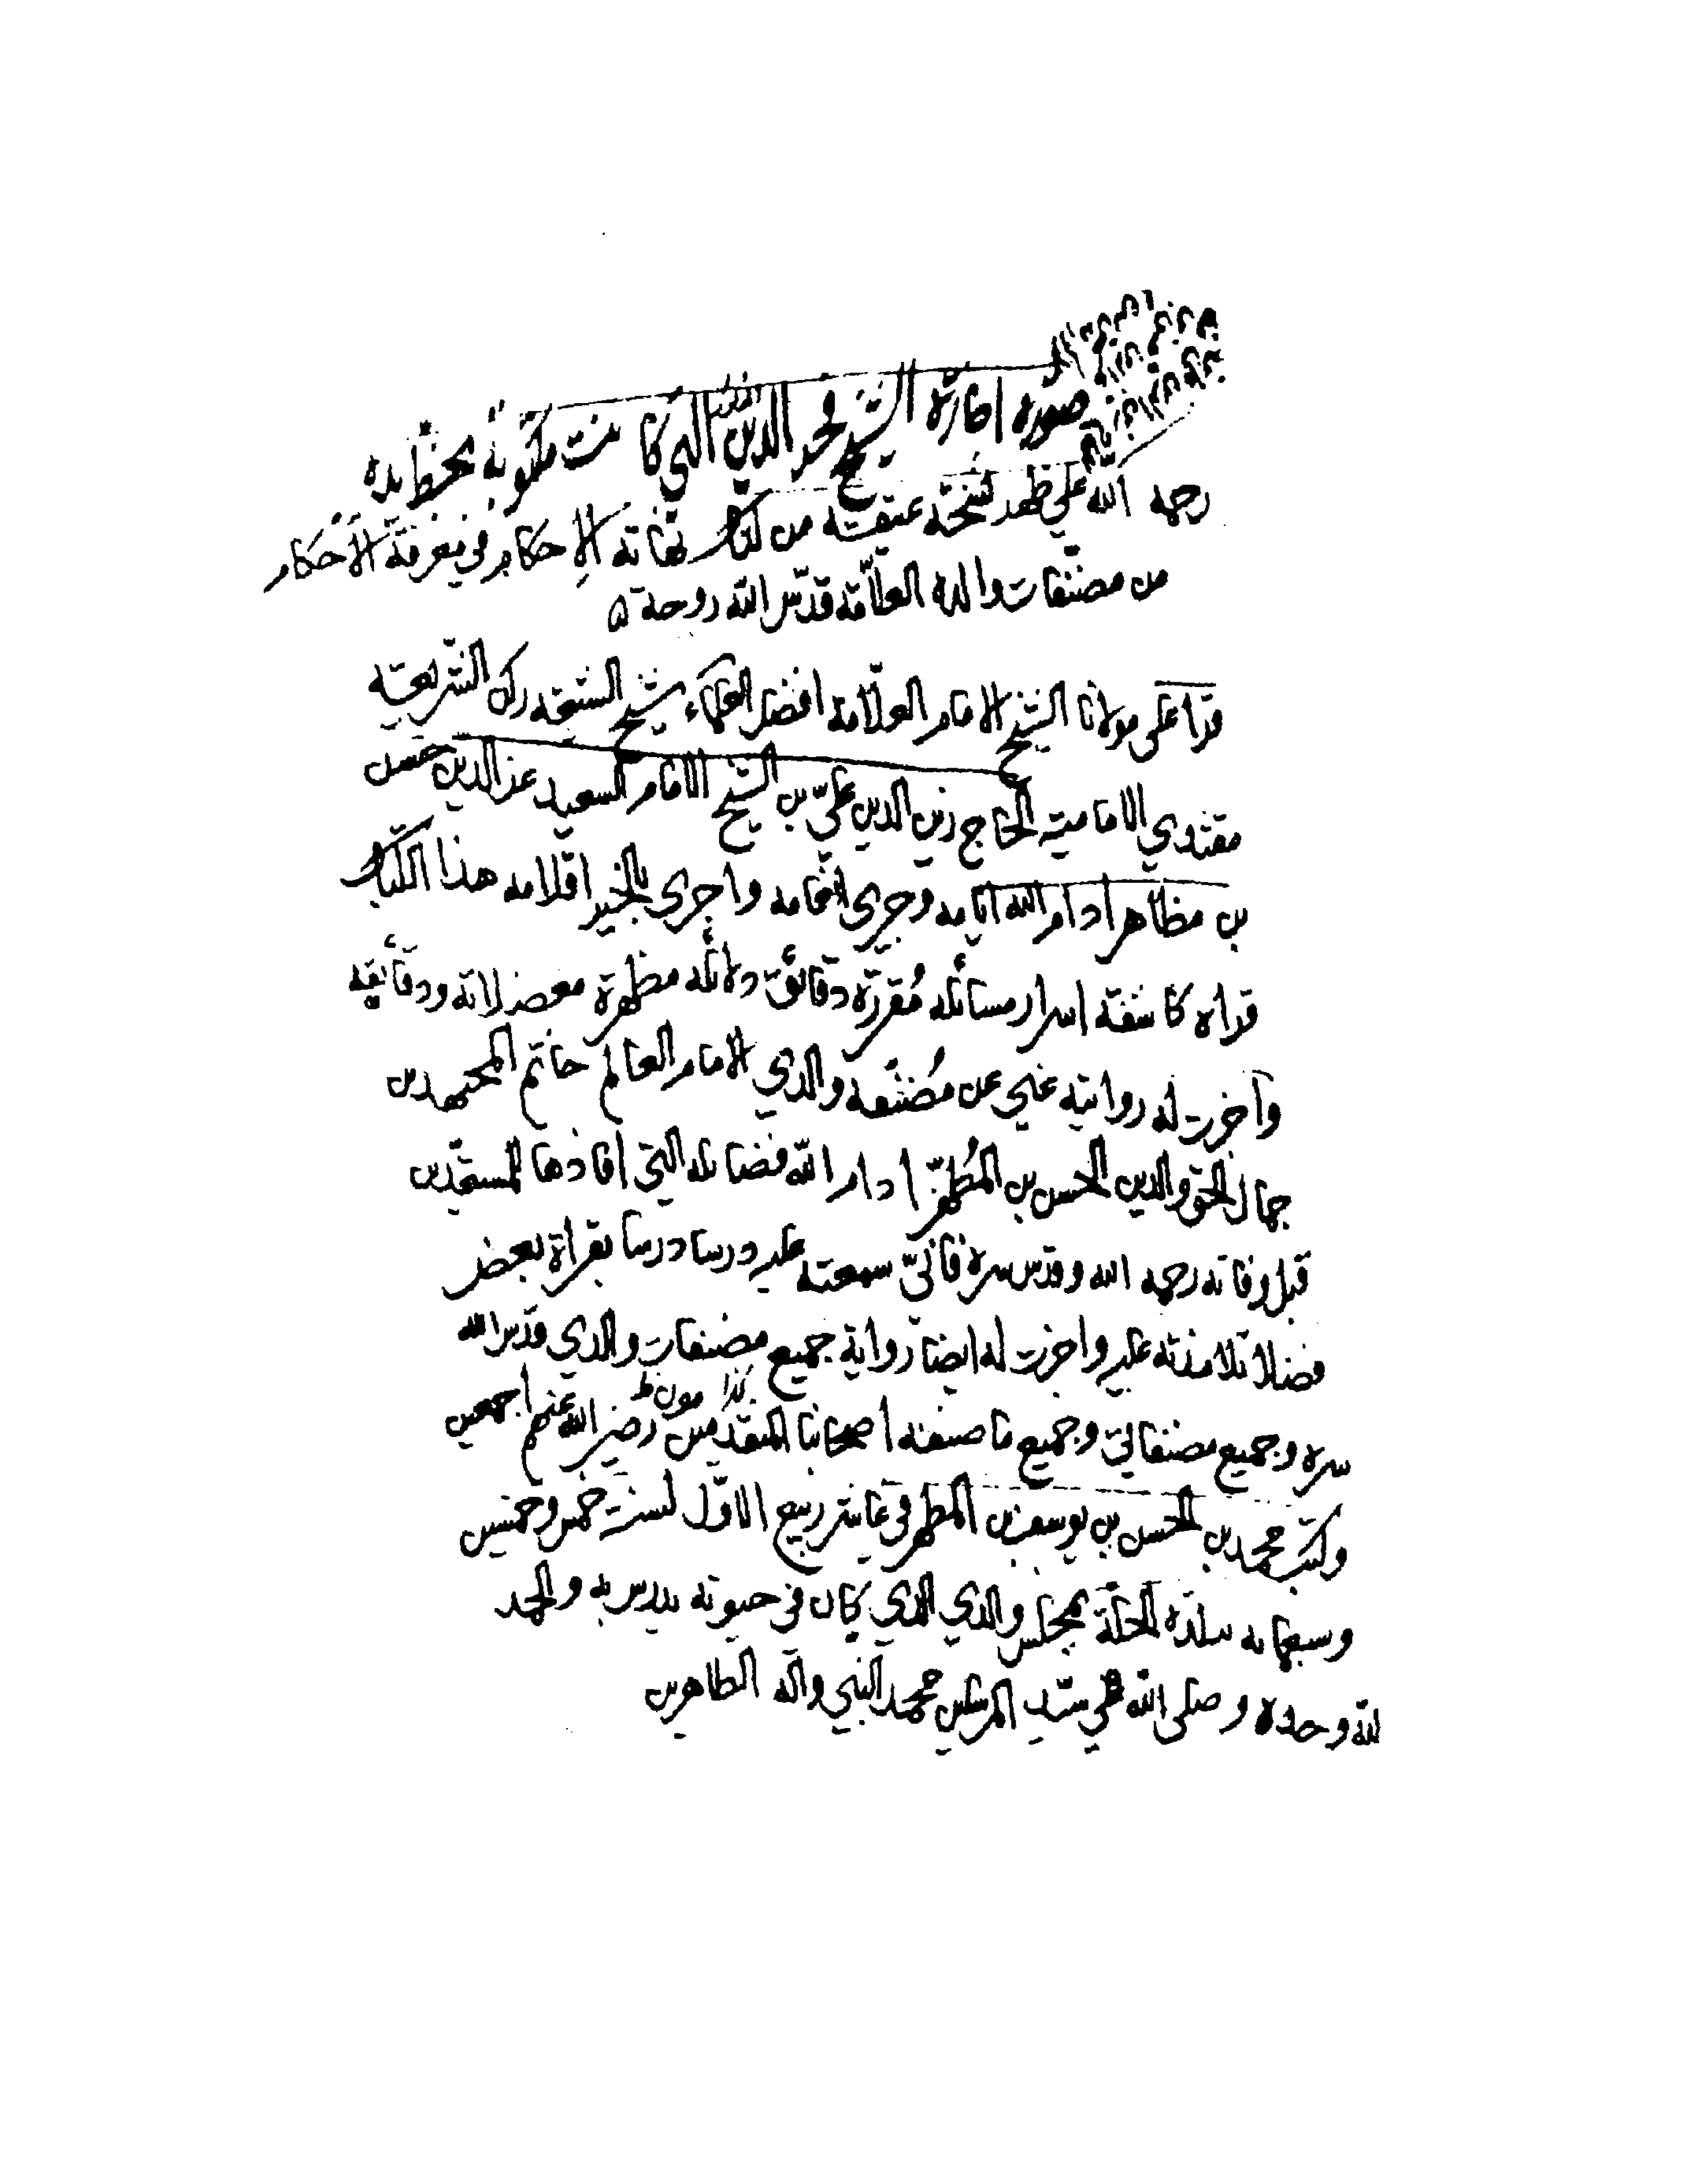 صورة اجازة الشيخ فخر الدين التي كانت مكتوبة بخط يده
رحمه الله علي ظهر نسخة عتيقة من كتاب نهاية الاحكام في معرفة الأحكام
من مصنفات والده العلّامة قدّس الله روحه
قرا على مولانا الشيخ الامام العلّامة افضل العلماء شيخ الشيعه ركن الشريعة
مقتدي الامامية الحاج زين الدين عليّ بن الشيخ الامام السعيد عز الدين حسن
بن مظاهر ادام الله ايامه واجرى بالخير اقلامه هذا الكتاب
قراه كاشفة اسرار مسائله مُقررة دقائق دلائله مظهرة معضلاته ودقائقه
واجزت له روايته عني عن مُصنّفه والدي الامام العالم خاتم المجتهدين
جمال الحق والدين الحسن بن المُطهّر ادام الله فضائله التي افادها للمستعدّين
قبل وفاته رحمه الله وقدس سره فانيّ سمعته عليه درسا درسا بقراة بعض
فضلا تلامذته عليه واجزت له ايضا رواية جميع مصنفات والدي قدس الله
سره وجميع مصنفاتي وجميع ما صنفه اصحابنا المتقدمين رضي الله عنهم اجمعين
كذا
وكتب محمد بن الحسن بن يوسف بن المطهر في عاشر ربيع الاوّل لسنة خمس وخمسين
وسبعمايه ببلدة الحلّة بمجلس والدي الذي كان في حيوته يدرس به والحمد
لله وحده وصلى الله علي سيّد المرسلين محمد النبي وآله الطاهرين